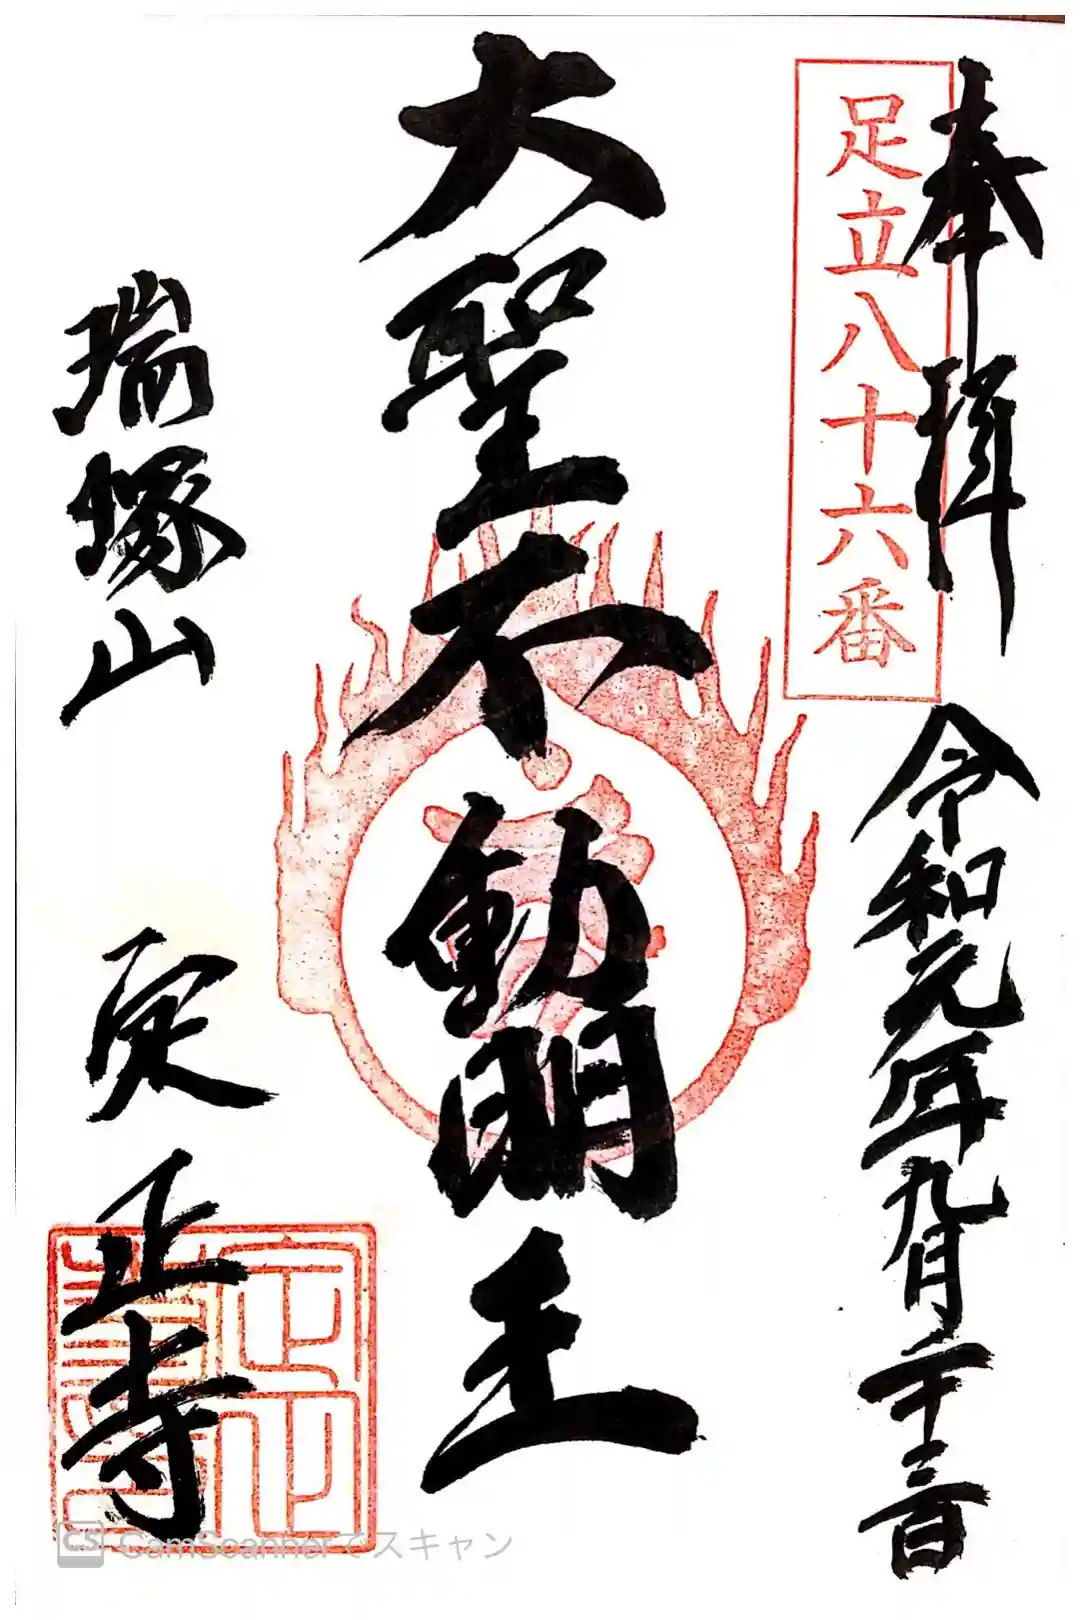 奉拝
足立八十六番
令和元年九月二十三日
大聖不動明王
瑞塚山
定正寺
CS CamScannerでスキャン